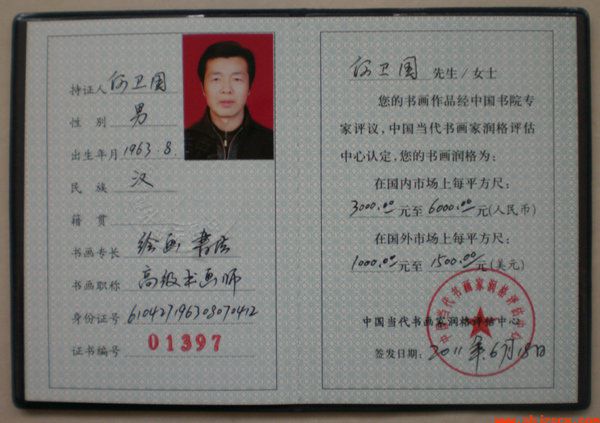 持证人 何卫国
性别 男
出生年月 1963.8.
民族 汉
籍贯
书画专长 绘画 书法
书画职称 高级书画师
身份证号 610427196308070412
证书编号 01397
何卫国 先生/女士
您的书画作品经中国书院专
家评议,中国当代书画家润格评估
中心认定,您的书画润格为:
在国内市场上每平方尺:
3000.00元至 6000.00元(人民币)
在国外市场上每平方尺:
1000.00元至 1500.00元(美元)
中国当代书画家润格评估中心
签发日期: 2011年6月18日
中国当代书画家润格评估中心